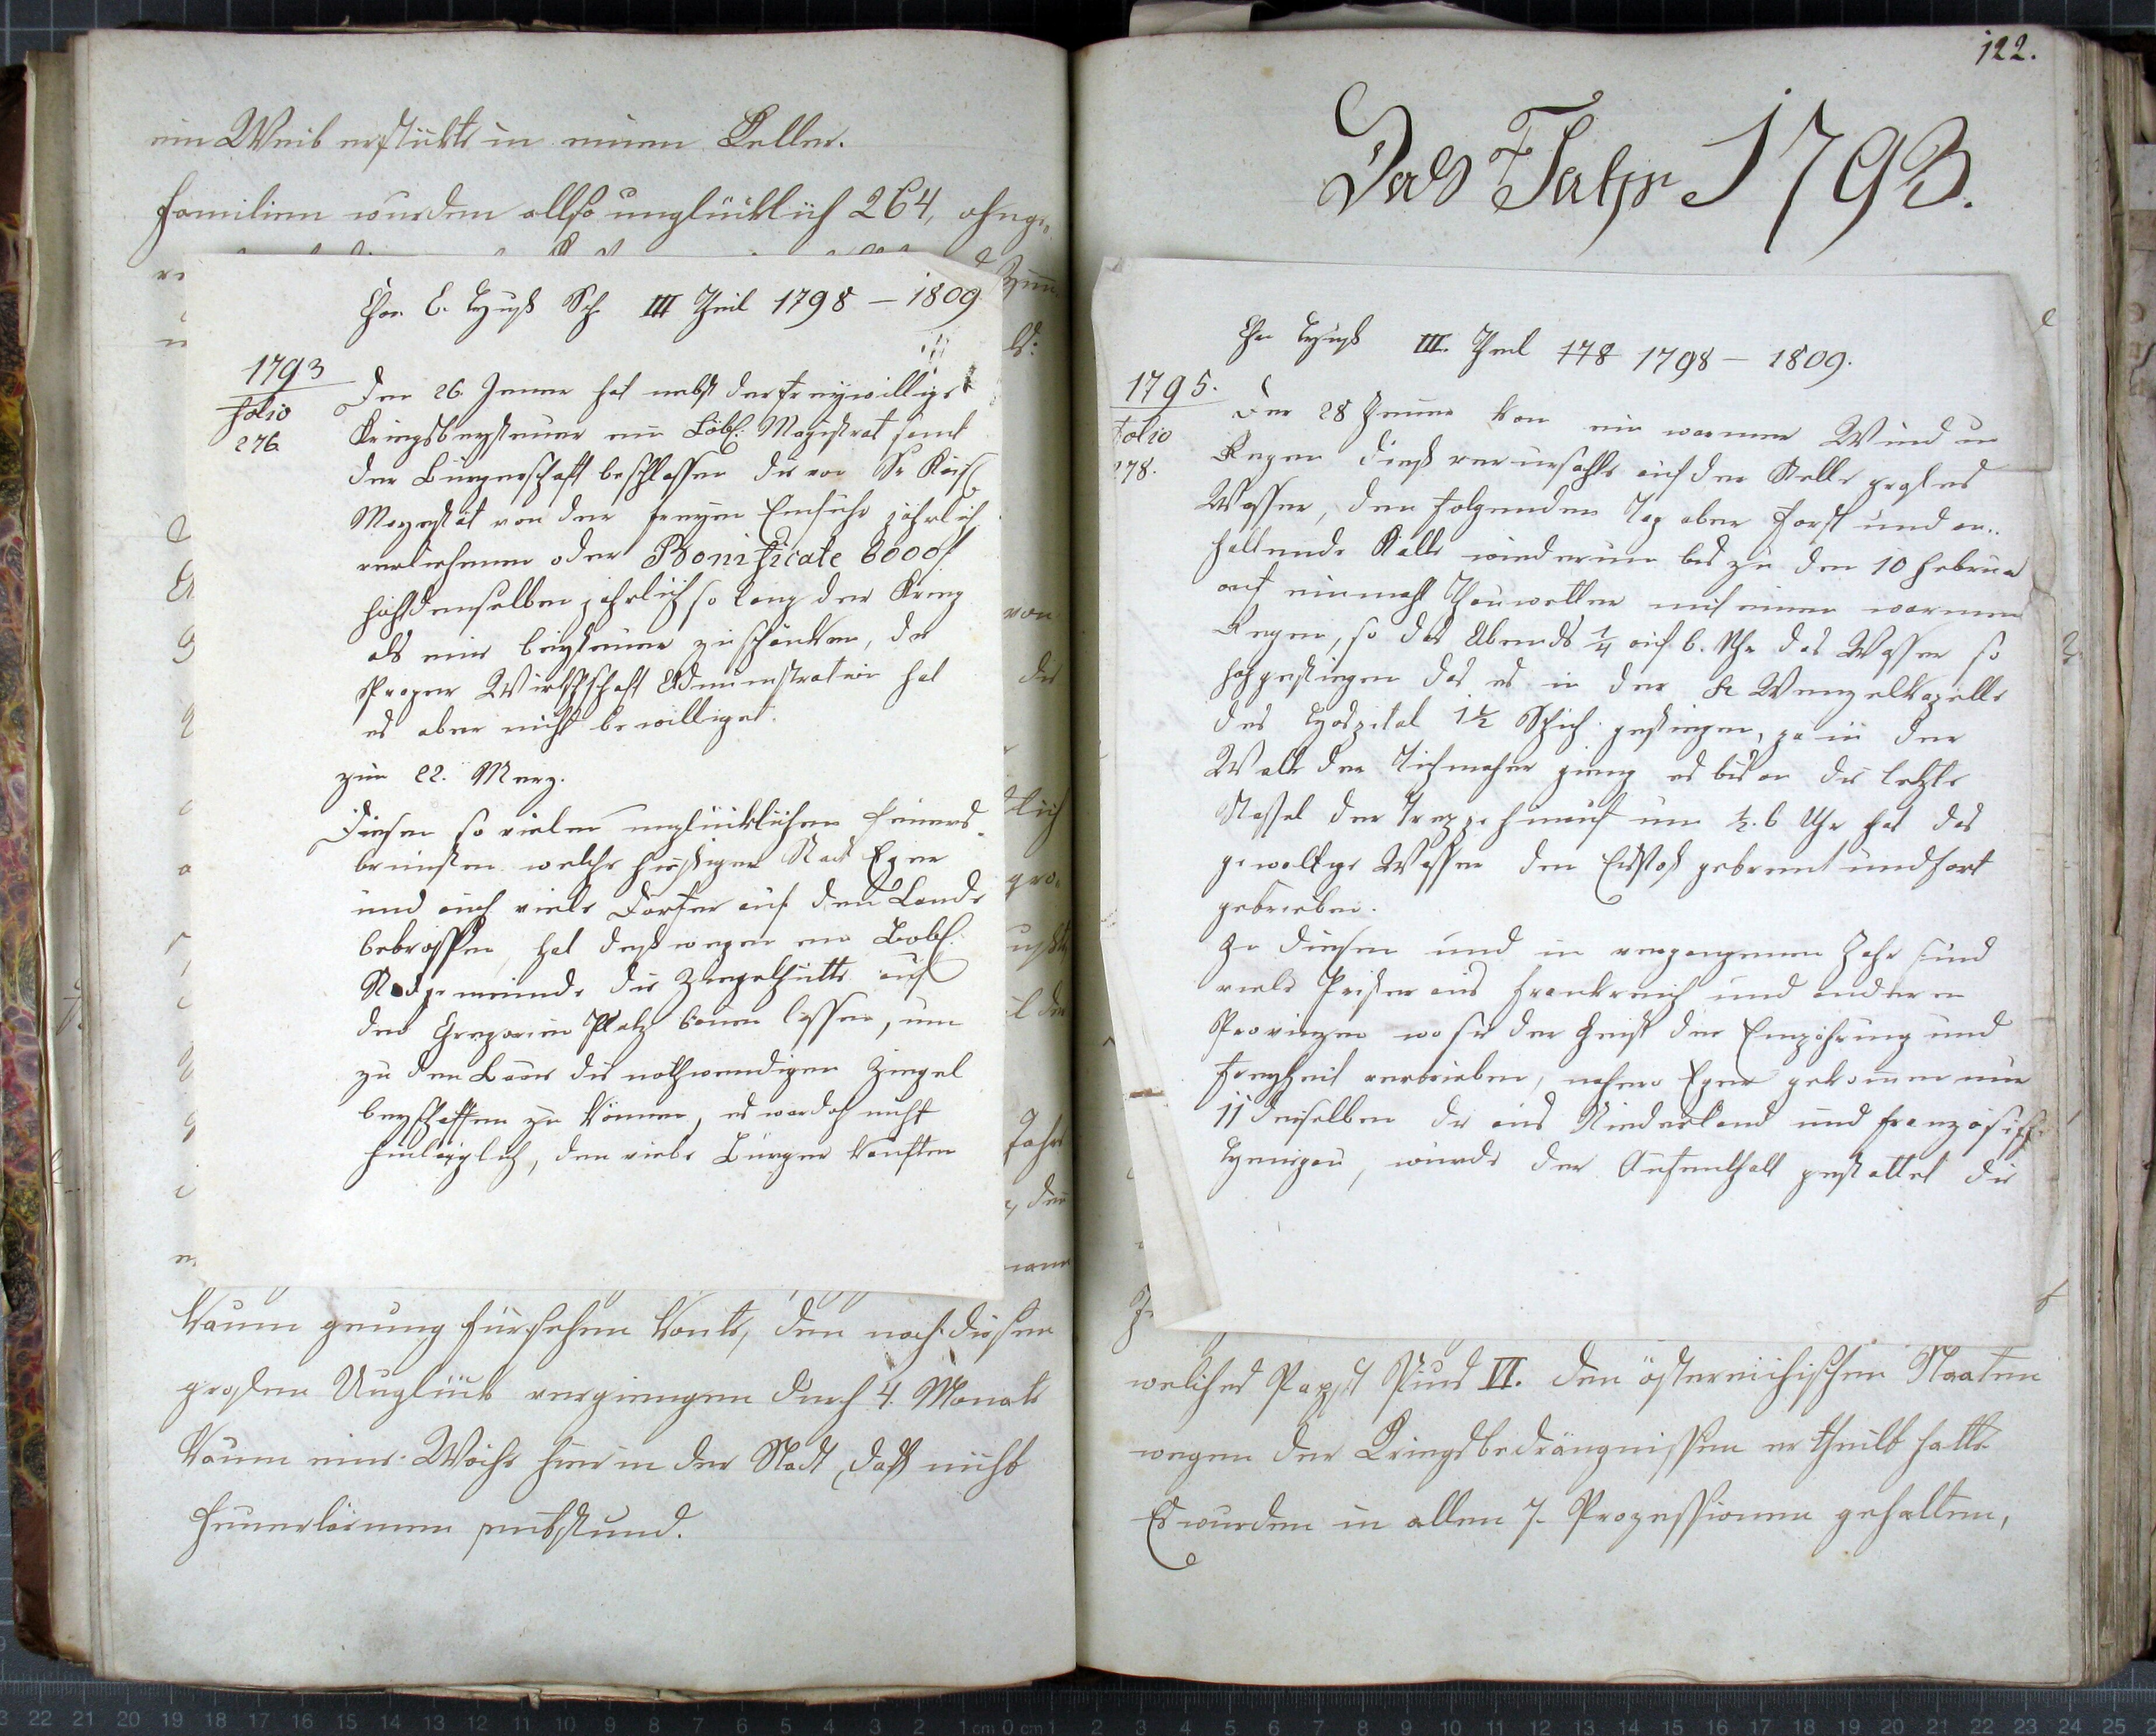 ein Weib erstükte in einem Keller.
Familien wurden allso unglücklich 264, ohnge¬
Chr. C. Huß Sch. III Theil 1798 – 1809
1793
folio
276
Den 26. Jenner hat nebst der freywillige
Kriegsbeysteuer ein Löbl: Magistrat samt
der Bürgerschaft beschlossen die von Sr Kais
Mayestät von der freyen Einfuhr jährlich
verliehenen oder Bonificate 6000 f
höchstdenselben jährlich so lang der Krieg
als eine beysteuer zu schänken, die
Prager Wirthschaft Administration hat
es aber nicht bewilliget.
zum 22. Merz.
Diesen so vielen unglücklichen Feuers¬
brünsten welche hiesiger Stadt Eger
und auch viele Dörfer auf dem Lande
betroffen, hat deßwegen ein Löbl:
Stadgemeinde die Ziegelhütte auf
den Gregorien Platz bauen lassen, um
zu den Baue die nothwendigen Ziegel
beyschaffen zu können, es war doch nicht
hinlänglich, den viele Bürger kauften
von
die
tlich
gro¬
Jahr
den
kaum genung fürsehen konte, den nach diesen
großen Unglück vergiengen durch 4. Monate
kaum eine Woche hier in der Stadt, daß nicht
Feuerlärmen entstund.
122.
Das Jahr 1793.
Chr Huß III. Theil 178 1798 – 1809.
1795.
folio
278.
Den 28 Jenner kam ein warmer Wind u
Regen dieß verursachte auf der Stelle großes
Wasser, den folgenden Tag aber Frost und an¬
haltende Kälte wiederum bis zu den 10 Februa
auf einmahl Thauwetter mit einen warmen
Regen, so das Abends ¼ auf 6. Uhr das Wasser so
hoch gestiegen das es in der St Wenzelkapelle
des Hospital 1½ Schuh gestiegen, ja in der
Walk der Tuchmacher gieng es bis an die letzte
Staffel der Treppe hinauf um ½ 6 Uhr hat das
gewaltige Wasser den Eisstoß getrennt und fort
getrieben.
In diesen und in vergangenen Jahr sind
viele Prister aus Frankreich und anderen
Provinzen wo sie der Geist der Empöhrung und
Freyheit vertrieben, nacher Eger gekommen nur
11 denselben die aus Niederland und französisch
Hennegau, wurde der Aufenthalt gestattet die
welches Papst Pius VI. den östereichischen Staaten
wegen der Kriegsbedrängnissen ertheilt hatte
Es wurden in allen 7. Prozessionen gehalten,